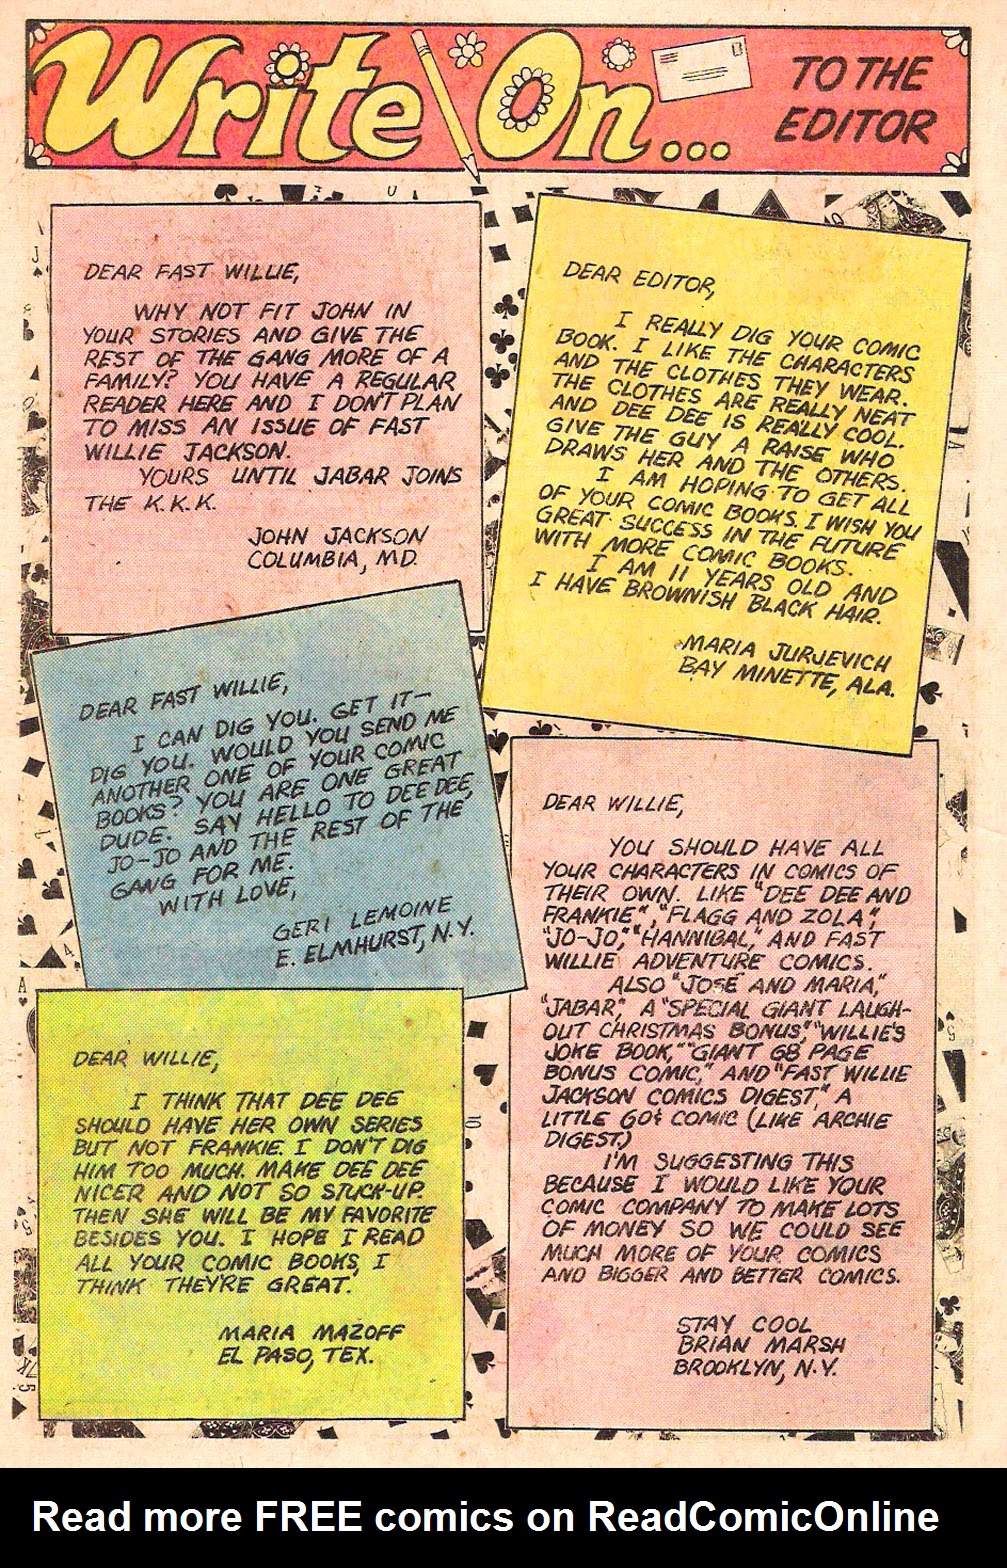 Write On...
TO THE
EDITOR
DEAR FAST WILLIE,
WHY NOT FIT JOHN IN
YOUR STORIES AND GIVE THE
REST OF THE GANG MORE OF A
FAMILY? YOU HAVE A REGULAR
READER HERE AND I DON'T PLAN
TO MISS AN ISSUE OF FAST
WILLIE JACKSON.
YOURS UNTIL JABAR JOINS
THE K.K.K.
JOHN JACKSON
COLUMBIA, MD.
DEAR EDITOR,
I REALLY DIG YOUR COMIC
BOOK. I LIKE THE CHARACTERS
AND THE CLOTHES THEY WEAR.
THE CLOTHES ARE REALLY NEAT
AND DEE DEE IS REALLY COOL.
GIVE THE GUY A RAISE WHO
DRAWS HER AND THE OTHERS.
I AM HOPING TO GET ALL
OF YOUR COMIC BOOKS. I WISH YOU
GREAT SUCCESS IN THE FUTURE
WITH MORE COMIC BOOKS.
I AM 11 YEARS OLD AND
I HAVE BROWNISH BLACK HAIR.
MARIA JURJEVICH
BAY MINETTE, ALA.
DEAR FAST WILLIE,
I CAN DIG YOU. GET IT—
DIG YOU. WOULD YOU SEND ME
ANOTHER ONE OF YOUR COMIC
BOOKS? YOU ARE ONE GREAT
DUDE. SAY HELLO TO DEE DEE,
JO-JO AND THE REST OF THE
GANG FOR ME.
WITH LOVE,
GERI LEMOINE
E. ELMHURST, N.Y.
DEAR WILLIE,
I THINK THAT DEE DEE
SHOULD HAVE HER OWN SERIES
BUT NOT FRANKIE. I DON'T DIG
HIM TOO MUCH. MAKE DEE DEE
NICER AND NOT SO STUCK-UP.
THEN SHE WILL BE MY FAVORITE
BESIDES YOU. I HOPE I READ
ALL YOUR COMIC BOOKS, I
THINK THEY'RE GREAT.
MARIA MAZOFF
EL PASO, TEX.
DEAR WILLIE,
YOU SHOULD HAVE ALL
YOUR CHARACTERS IN COMICS OF
THEIR OWN. LIKE "DEE DEE AND
FRANKIE", "FLAGG AND ZOLA",
"JO-JO," "HANNIBAL," AND FAST
WILLIE ADVENTURE COMICS.
ALSO "JOSÉ AND MARIA,"
"JABAR", A "SPECIAL GIANT LAUGH-
OUT CHRISTMAS BONUS," "WILLIE'S
JOKE BOOK," "GIANT 68 PAGE
BONUS COMIC," AND "FAST WILLIE
JACKSON COMICS DIGEST," A
LITTLE 60¢ COMIC (LIKE ARCHIE
DIGEST.)
I'M SUGGESTING THIS
BECAUSE I WOULD LIKE YOUR
COMIC COMPANY TO MAKE LOTS
OF MONEY SO WE COULD SEE
MUCH MORE OF YOUR COMICS
AND BIGGER AND BETTER COMICS.
STAY COOL
BRIAN MARSH
BROOKLYN, N.Y.
Read more FREE comics on ReadComicOnline